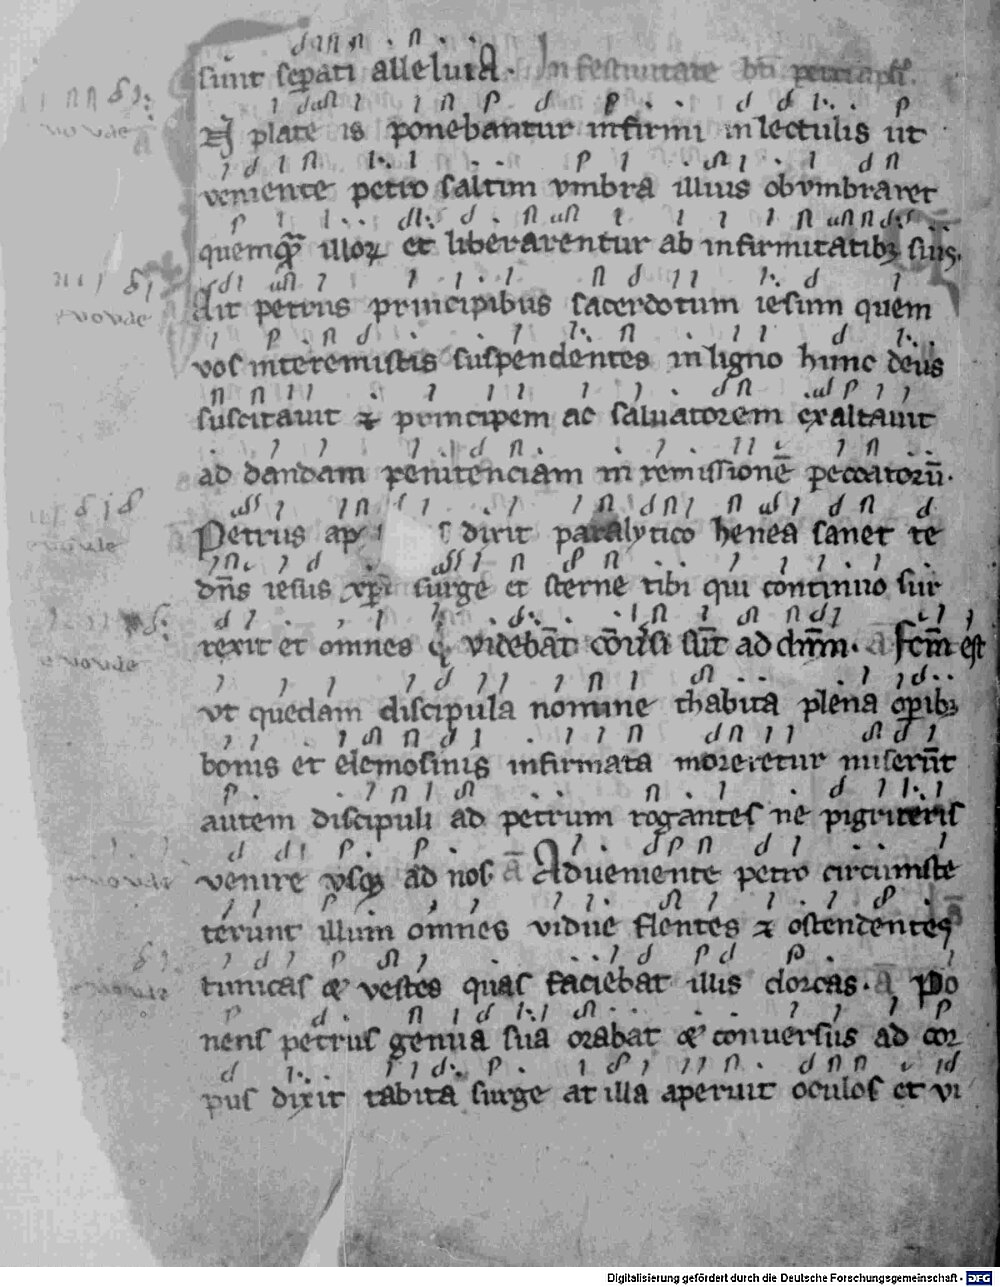 sunt sep̄ati alleluiA. In festiuitate bt̄i petri apl̄i.
IN plateis ponebantur infirmi in lectulis ut
euouae
veniente petro saltim vmbra illius obvmbraret
quemq̄ illoꝝ et liberarentur ab infirmitatibꝫ suis.
Ait petrus principibus sacerdotum iesum quem
euouae
vos interemistis suspendentes in ligno hunc deus
suscitauit ⁊ principem ac saluatorem exaltauit
ad dandam penitenciam in remissionē peccatorū.
Petrus ap s dixit paralytico henea sanet te
euouae
dn̄s iesus xp̄i surge et sterne tibi qui continuo sur
rexit et omnes q̄ videbāt cōuersi sūt ad dn̄m. a̅ fcm̄ est
euouae
vt quedam discipula nomine thabita plena op̄ibꝫ
bonis et elemosinis infirmata moreretur miserūt
autem discipuli ad petrum rogantes ne pigriteris
venire vsqꝫ ad nos a̅ Adueniente petro circumste
euouae
terunt illum omnes vidue flentes ⁊ ostendentes
tunicas & vestes quas faciebat illis dorcas. a̅ Po
euouae
nens petrus genua sua orabat & conuersus ad cor
pus dixit tabita surge at illa aperuit oculos et vi
Digitalisierung gefördert durch die Deutsche Forschungsgemeinschaft - DFG